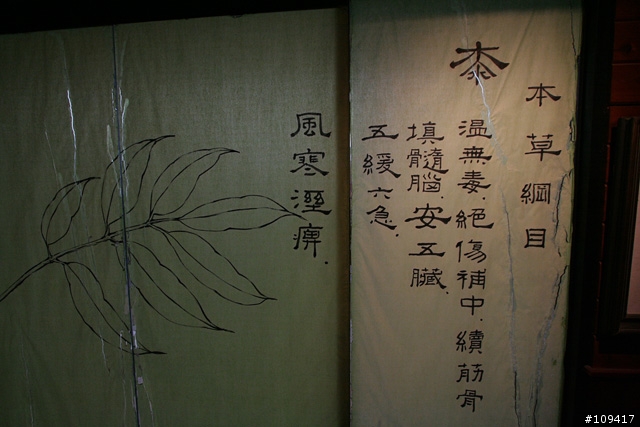 本草綱目
桼
溫無毒.絕傷補中.續筋骨
填髓腦.安五臟.
五緩六急.
風寒溼痹.
#109417